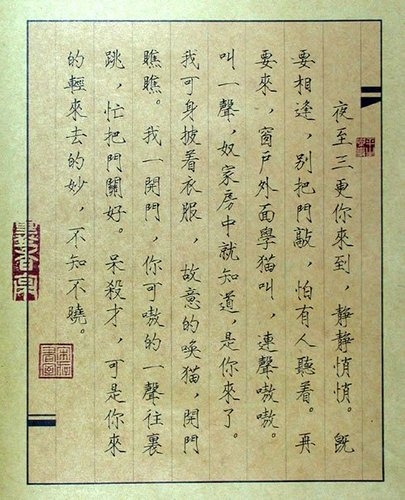 夜至三更你來到，靜靜悄悄。既
要相逢，別把門敲，怕有人聽着。再
要來，窗戶外面學猫叫，連聲嗷嗷。
叫一聲，奴家房中就知道，是你來了。
我可身披着衣服 故意的喚猫，開門
瞧瞧。我一開門，你可嗷的一聲往裏
跳，忙把門關好。呆殺才，可是你來
的輕來去的妙，不知不曉。